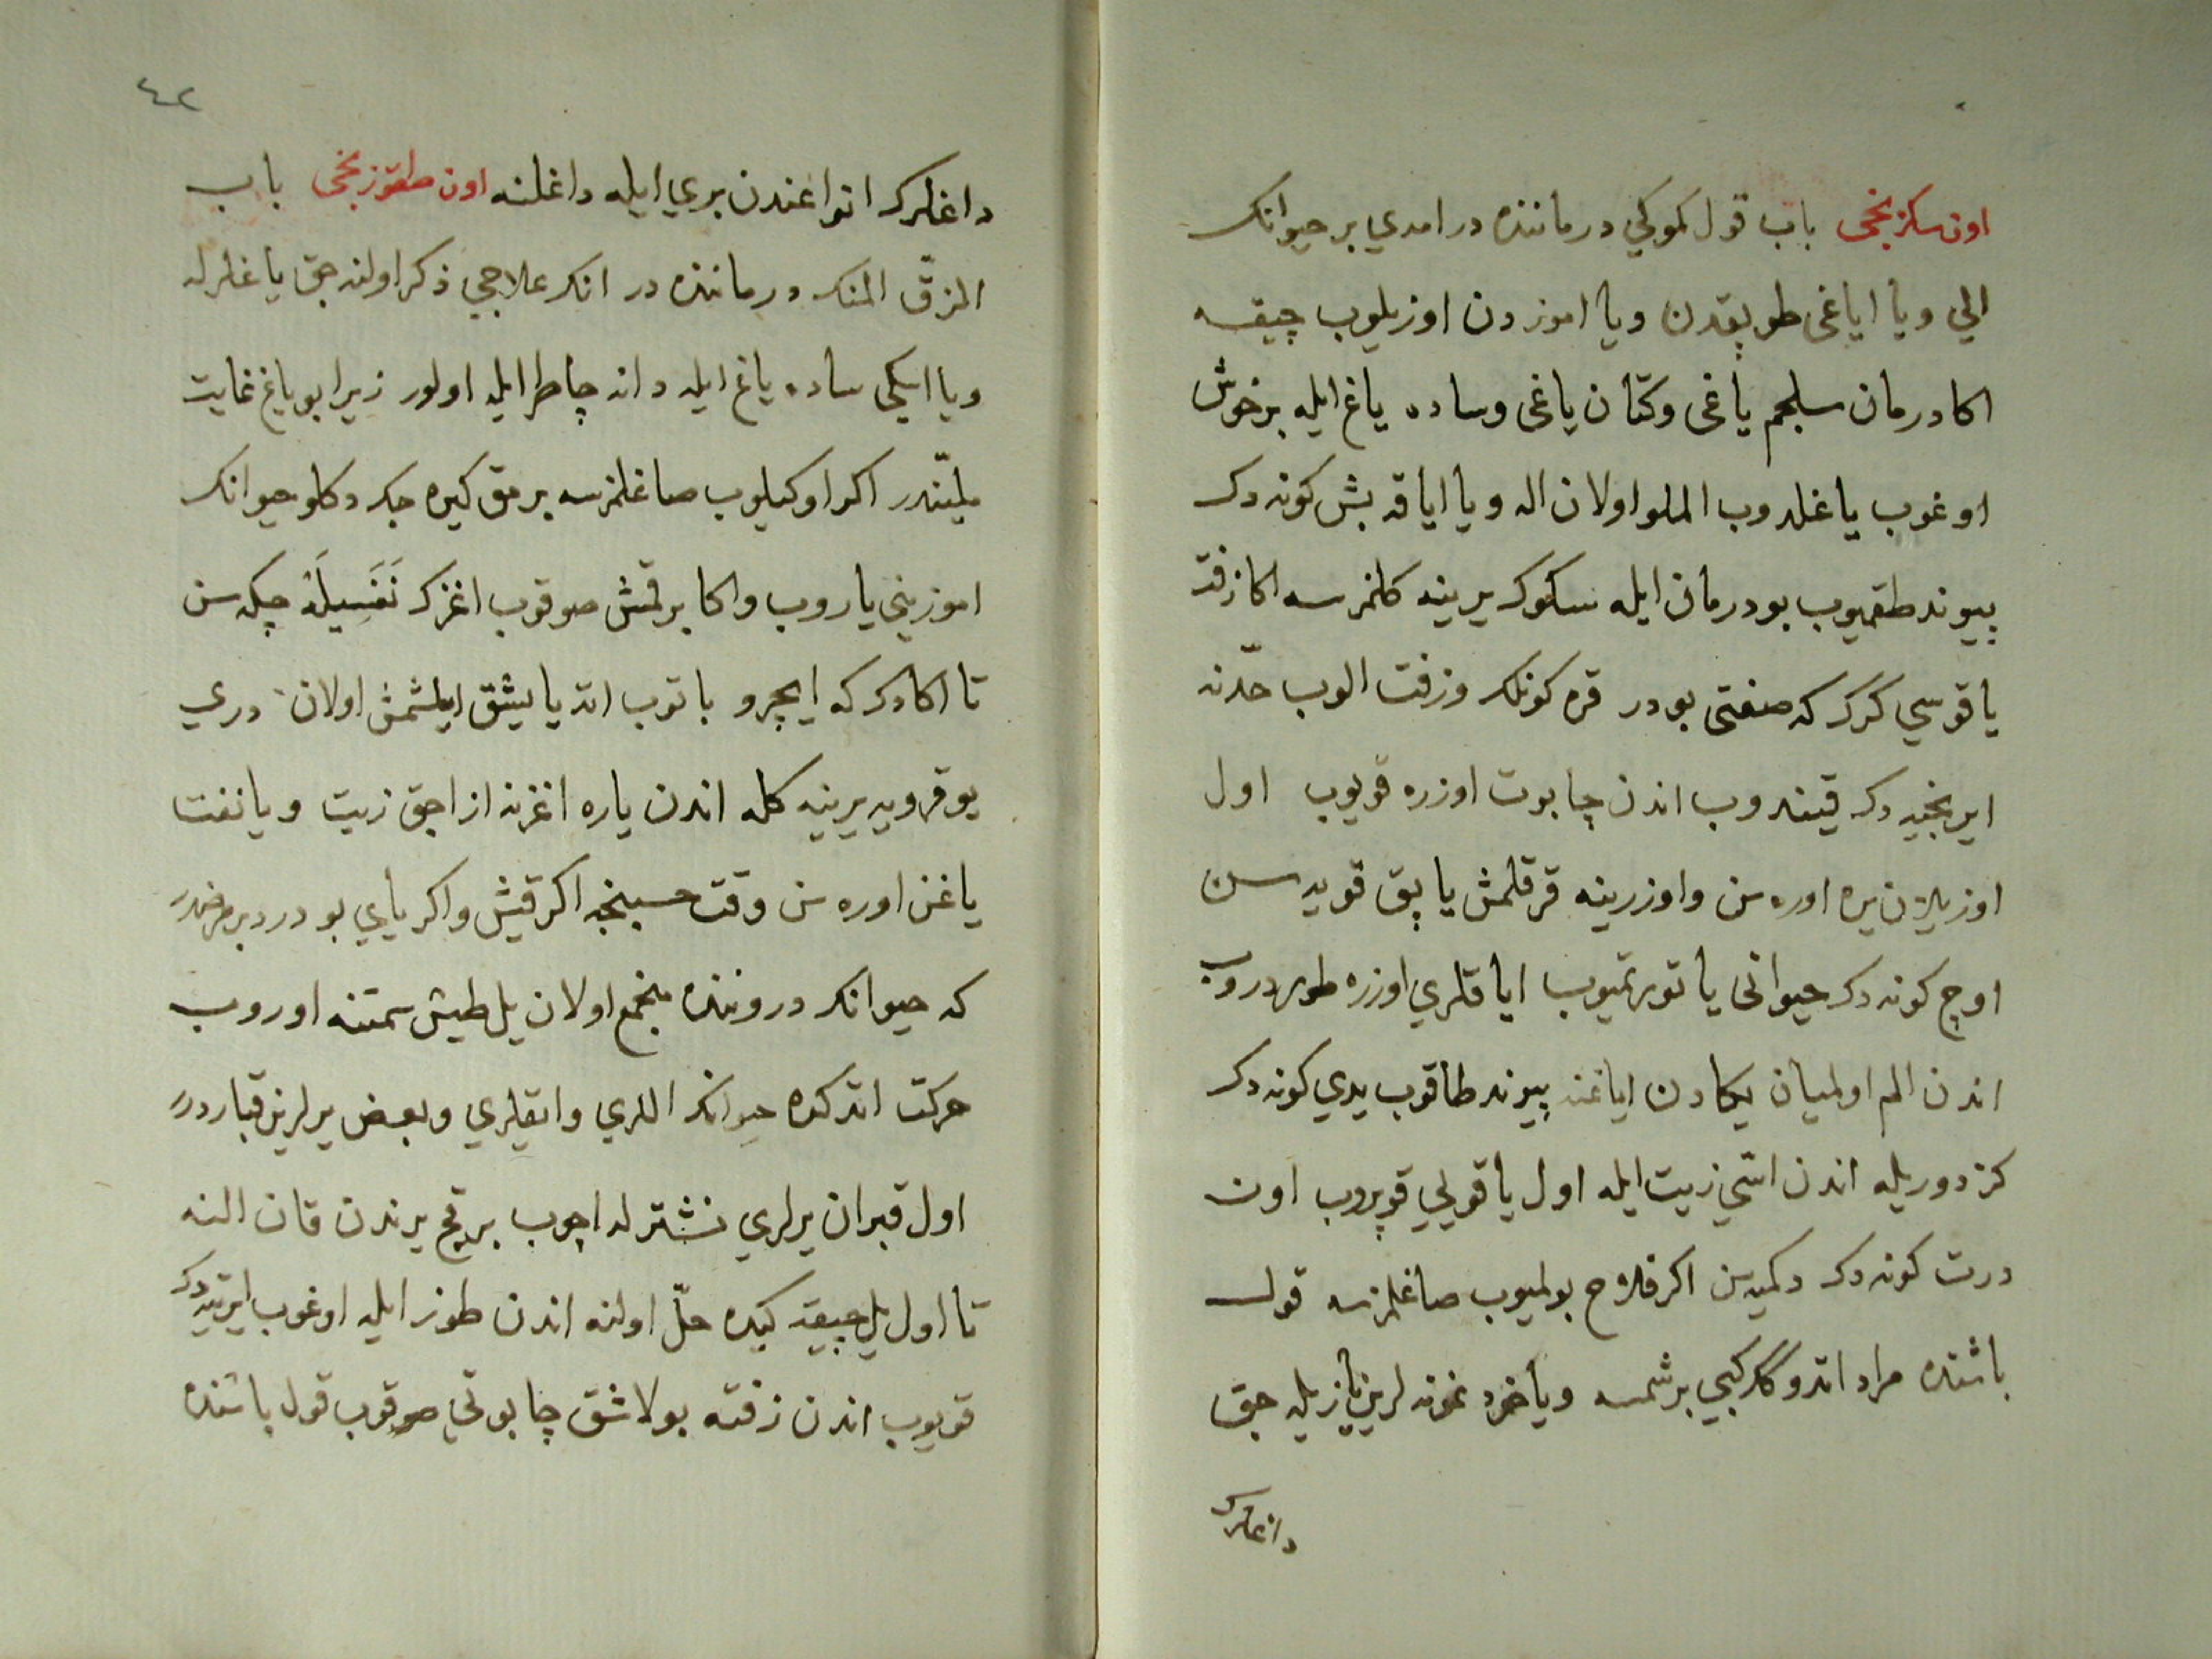 اون سكزنجى باب قول كموكي درماننده در امدي بر حيوانك
الي ويا اياغى طوپقدن ويا اموزدن اوزيلوب چيقسه
اكا درمان سلجم ياغى وكتان ياغى وساده ياغ ايله برخوش
اوغوب ياغلدوب الملو اولان اله ويا اياقه بش كونه دك
پيوند طقميوب بو درمان ايله سكوك يرينه كلمزسه اكا زفت
ياقوسي كرك كه صفتى بودر قره كونلك وزفت الوب حدّنه
ايرنجيه دك قيندروب اندن چاپوت اوزره قويوب اول
اوزيلان يره اوره سن واوزرينه قرقلمش ياپق قويه سن
اوچ كونه دك حيوانى ياتورتميوب اياقلري اوزره طوردروب
اندن الم اولميان يكادن اياغنه پيوند طاقوب يدي كونه دك
كزدوريله اندن اسّي زيت ايله اول ياقويي قوپروب اون
درت كونه دك دكميه سن اكر فلاح بولميوب صاغلمزسه قول
باشنده مراد اتدوكك كبي برشمسه وياخود نمونه لرين يازيله جق
داغلرك
٤٢
داغلرك انواعندن بري ايله داغلنه اون طقوزنجى باب
المزق المنك درماننده در انك علاجي ذكر اولنه جق ياغلرله
ويا ايكى ساده ياغ ايله دانه چاطر ايله اولور زيرا بو ياغ غايت
مليّندر اكر اوكيلوب صاغلمزسه برمق كيره جك دكلو حيوانك
اموزيني ياروب واكا برقمش صوقوب اغزك نَفَسِيلَهْ چكه سن
تا اكا دك كه ايچرو باتوب اته ياپيشق ايلشمش اولان دري
يوقرويه يرينه كله اندن ياره اغزنه ازاجق زيت ويا نفت
ياغن اوره سن وقت حسبنجه اكر قيش واكر ياي بو درد برمرضدر
كه حيوانك دروننده مجمع اولان يل طيش سمتنه اوروب
حركت اتدكده حيوانك اللري واياقلري وبعض يرلرين قبارد‌ر
اول قبران يرلري نشترله اچوب برقچ يرندن قان النه
تا اول يل چيقه كيده حلّ اولنه اندن طوز ايله اوغوب ايرتيه دك
قويوب اندن زفته بولاشق چاپوتي صوقوب قول باشنده